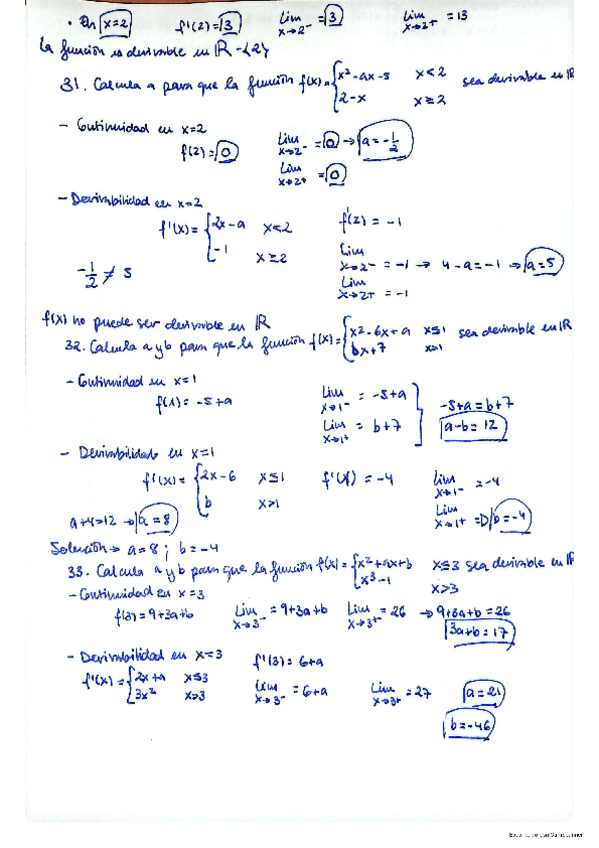 • En x=2 f'(2)=13 Lim x→2⁻ =13 Lim x→2⁺ =13
La función es derivable en ℝ-{2}
31. Calcula a para que la función f(x)={x²-ax-5 x<2 ; 2-x x≥2 sea derivable en ℝ
- Continuidad en x=2
f(2)=0 Lim x→2⁻ =0 → a=-1/2
Lim x→2⁺ =0
- Derivabilidad en x=2
f'(x)={2x-a x<2 ; -1 x≥2 f'(2)=-1
Lim x→2⁻ =-1 → 4-a=-1 → a=5
-1/2 ≠ 5 Lim x→2⁺ =-1
f(x) no puede ser derivable en ℝ
32. Calcula a y b para que la función f(x)={x²-6x+a x≤1 ; bx+7 x>1 sea derivable en ℝ
- Continuidad en x=1
f(1)=-5+a Lim x→1⁻ =-5+a
Lim x→1⁺ =b+7 -5+a=b+7
a-b=12
- Derivabilidad en x=1
f'(x)={2x-6 x≤1 ; b x>1 f'(1)=-4 Lim x→1⁻ =-4
a+4=12 → a=8 Lim x→1⁺ =D b=-4
Solución → a=8; b=-4
33. Calcula a y b para que la función f(x)={x²+ax+b x≤3 ; x³-1 x>3 sea derivable en ℝ
- Continuidad en x=3
f(3)=9+3a+b Lim x→3⁻ =9+3a+b Lim x→3⁺ =26 → 9+3a+b=26
3a+b=17
- Derivabilidad en x=3 f'(3)=6+a
f'(x)={2x+a x≤3 ; 3x² x>3 Lim x→3⁻ =6+a Lim x→3⁺ =27 a=21
b=-46